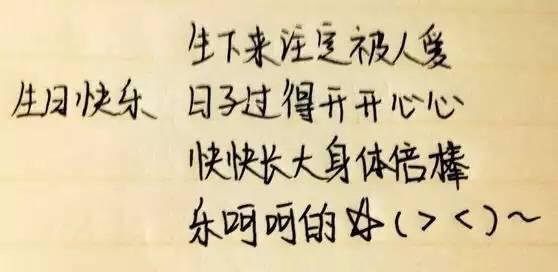 生下来注定被人爱
生日快乐 日子过得开开心心
快快长大身体倍棒
乐呵呵的☆(><)~